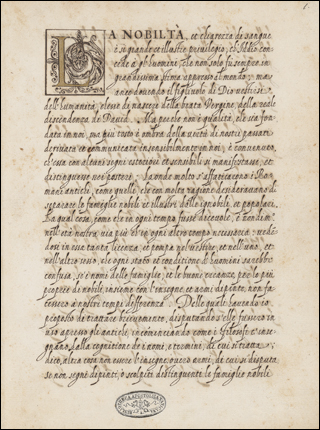 LA NOBILTÀ, et chiarezza di sangue
è si grande et illustre privilegio, ch'Iddio con
cede à gl'huomini, che non solo fu sempre in
grandissima stima appresso al mondo; ma
volendo il figliuolo di Dio vestirsi
dell'humanità, elesse di nascere della beata Vergine, della reale
discendenza de David. Ma perche non è qualità, che sia fon
data in noi, ma più tosto è ombra della virtù de nostri passati
derivata et communicata insensibilmente in noi; è convenuto,
ch'essa con alcuni segni esteriori et sensibili si manifestasse, et
distinguesse ne posteri. La onde molto s'affaticarono i Ro
mani antichi, come quelli, che con molta ragione desideravano di
separare le famiglie nobili et illustri dalle ignobili, et popolari.
La qual cosa, come che in ogni tempo fusse
nell'età nostra, via più ch'in ogni altro tempo necessaria: veden
dosi in essa tanta licenza, et pompa nel vestire, et nell'uno, et
nell'altro sesso, che ogni stato et conditione d'huomini sarebbe
confusa, se i nomi delle famiglie, et le buone creanze, per lo più
proprie di nobili, insieme con l'insegne et armi dipinte, non fa
cessero à nostri tempi differenza. Delle quali havendo io
proposito di trattare brevemente, disputando s'elle fussero in
uso appresso gl'antichi, incominciando come i Filosofi c'inse
gnano dalla cognitione de i nomi, et termini, di cui si tratta:
dico, altra cosa non essere l'insegne overo armi, di cui si disputa
se non segni dipinti, ò scolpiti distinguenti le famiglie nobili